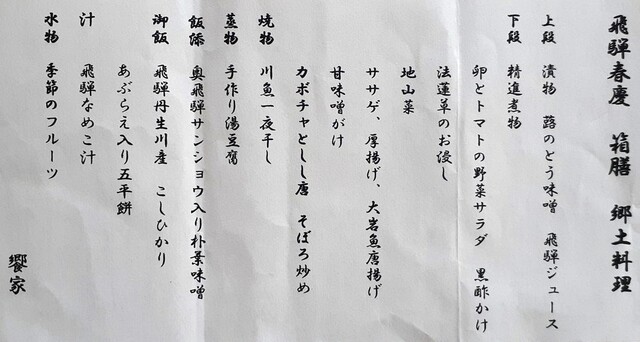 飛騨春慶 箱膳 郷土料理
上段 漬物 蕗のとう味噌 飛騨ジュース
下段 精進煮物
卵とトマトの野菜サラダ 黒酢かけ
法蓮草のお浸し
地山菜
ササゲ、厚揚げ、大岩魚唐揚げ
甘味噌がけ
カボチャとしし唐 そぼろ炒め
焼物 川魚一夜干し
蒸物 手作り湯豆腐
飯添 奥飛騨サンショウ入り朴葉味噌
御飯 飛騨丹生川産 こしひかり
あぶらえ入り五平餅
汁 飛騨なめこ汁
水物 季節のフルーツ
饗家